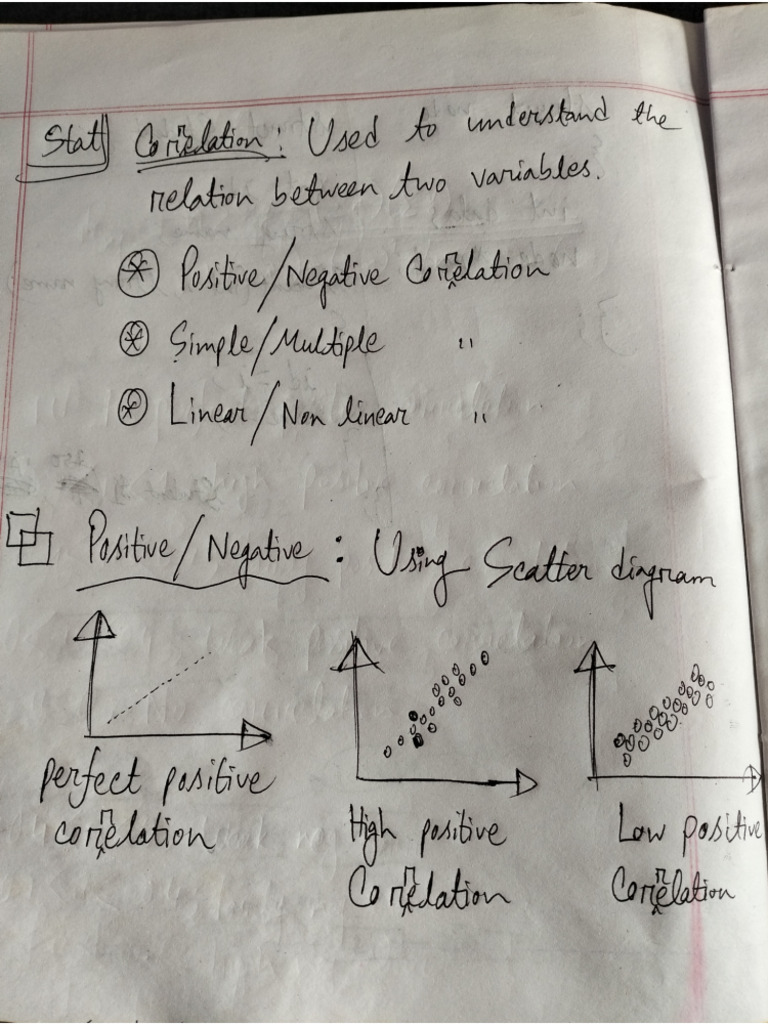 Stat Correlation: Used to understand the
relation between two variables.
Positive/Negative Correlation
Simple/Multiple "
Linear/Non linear "
Positive/Negative: Using Scatter diagram
perfect positive
correlation
High positive
Correlation
Low positive
Correlation